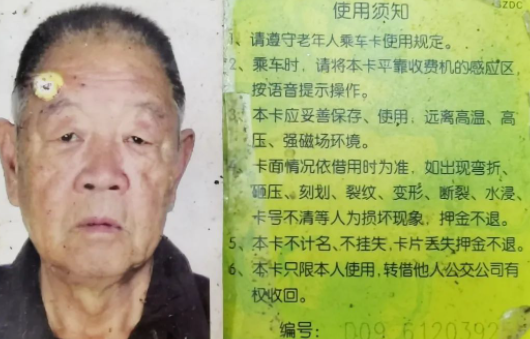 ZDC
使用须知
1、请遵守老年人乘车卡使用规定。
2、乘车时，请将本卡平靠收费机的感应区，
按语音提示操作。
3、本卡应妥善保存、使用，远离高温、高
压、强磁场环境。
4、卡面情况依借用时为准，如出现弯折、
砸压、刻划、裂纹、变形、断裂、水浸、
卡号不清等人为损坏现象，押金不退。
5、本卡不计名、不挂失，卡片丢失押金不退。
6、本卡只限本人使用，转借他人公交公司有
权收回。
编号：D09 6120392